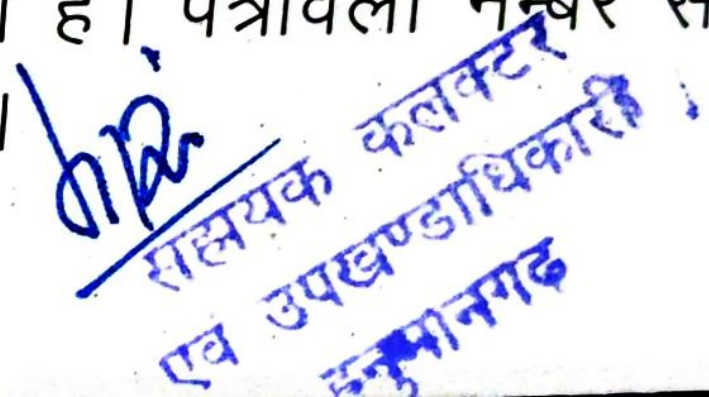 है। पत्रावली नम्बर स
।
सहायक कलक्टर
एवं उपखण्डाधिकारी
हनुमानगढ